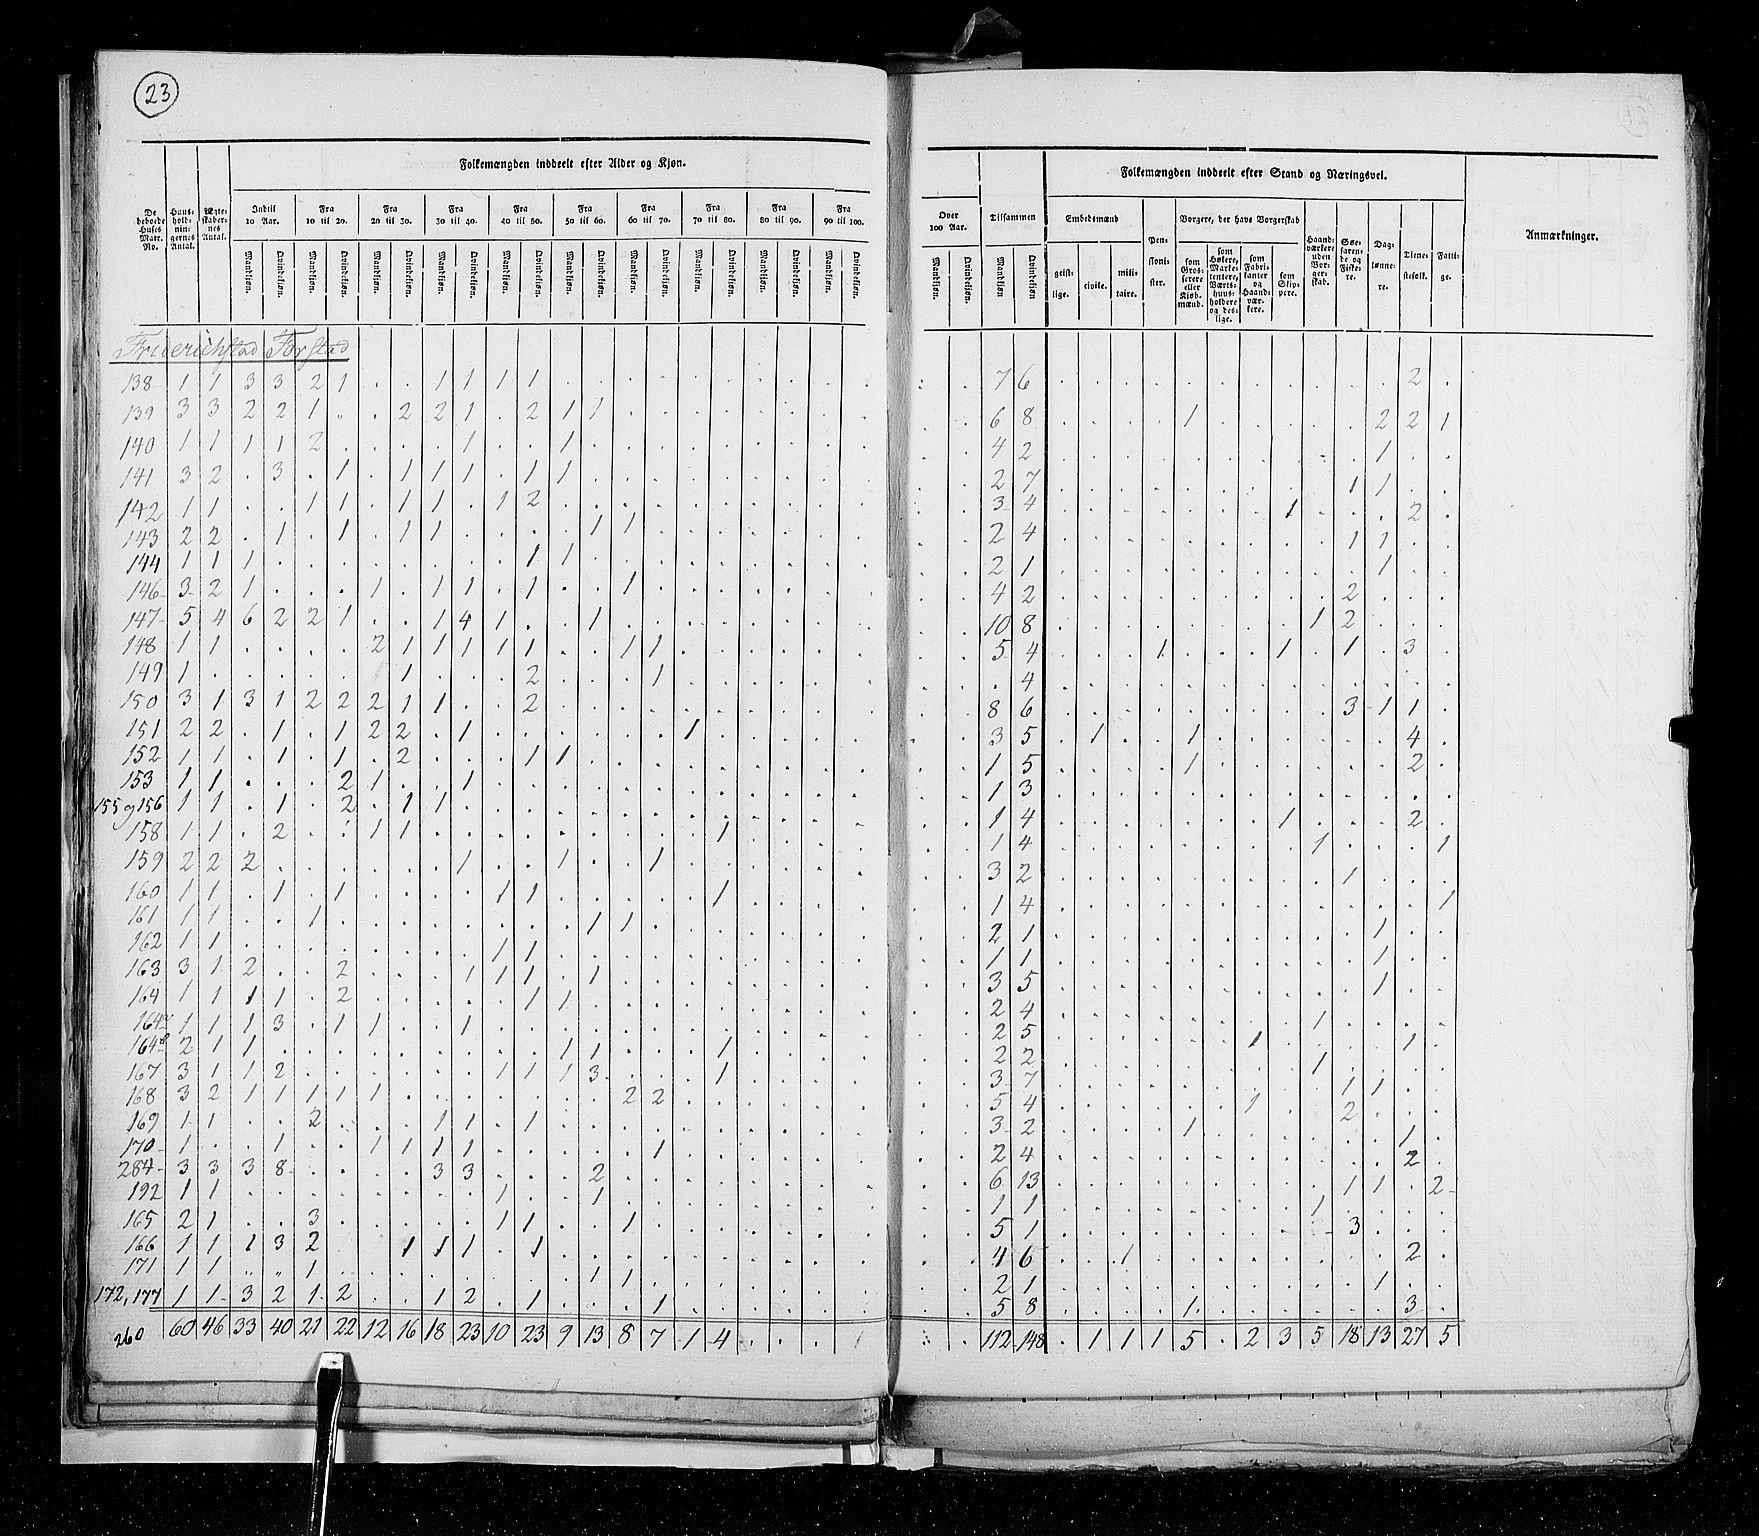 23
Folkemængden inddeelt efter Alder og Kjøn.
Folkemængden inddeelt efter Stand og Næringsvei.
De beboede Huses Matr. No.
Huus-hold-nin-gernes Antal.
Ægte-skaber-nes Antal.
Indtil 10 Aar.
Fra 10 til 20.
Fra 20 til 30.
Fra 30 til 40.
Fra 40 til 50.
Fra 50 til 60.
Fra 60 til 70.
Fra 70 til 80.
Fra 80 til 90.
Fra 90 til 100.
Over 100 Aar.
Tilsammen
Embedsmænd
geist-lige.
civile.
mili-taire.
Pen-sioni-ster.
Borgere, der have Borgerskab
som Gros-serere eller Kjøb-mænd.
som Høkere, Marke-tentere, Værts-huus-holdere og des-lige.
som Fabri-kanter og Haand-vær-kere.
som Skip-pere.
Haand-værkere uden Bor-ger-skab.
Søe-farende og Fiske-re.
Dag-lønne-re.
Tjene-stefolk.
Fatti-ge.
Anmærkninger.
Mandkjøn. Qvindekjøn.
Friderichstad Forstad
138 1 1 3 3 2 1 . . 1 1 1 1 . . . . . . . . . . . . 7 6 . . . . . . . . . . . 2 .
139 3 3 2 2 1 " . 2 2 1 . 2 1 1 . . . . . . . . . . 6 8 . . . . 1 . . . . . 2 2 1
140 1 1 1 1 2 . . . . 1 . . 1 . . . . . . . . . . . 4 2 . . . . . . . . . . 1 . .
141 3 2 . 3 . 1 . 1 1 1 . 1 1 . . . . . . . . . . . 2 7 . . . . . . . . . 1 1 . .
142 1 1 . . 1 1 . 1 1 . 1 2 . . . . . . . . . . . . 3 4 . . . . . . . 1 . . . 2 .
143 2 2 . 1 . 1 . 1 1 . . . . 1 1 . . . . . . . . . 2 4 . . . . . . . . . 1 1 . .
144 1 1 1 . . . . . . . . 1 1 . . . . . . . . . . . 2 1 . . . . . . . . . . 1 . .
146 3 2 1 . . . 1 . 1 1 . 1 . . 1 . . . . . . . . . 4 2 . . . . . . . . . 2 . . .
147 5 4 6 2 2 1 . . 1 4 1 . . 1 . . . . . . . . . . 10 8 . . . . . . . . 1 2 . . .
148 1 1 . . . . 2 1 1 1 1 1 . . 1 1 . . . . . . . . 5 4 . . . 1 . . . 1 . 1 . 3 .
149 1 . . . . . . 1 . . . 2 . . . 1 . . . . . . . . . 4 . . . . . . . . . . . . .
150 3 1 3 1 2 2 2 1 1 . . 2 . . . . . . . . . . . . 8 6 . . . . . . . . . 3 1 1 .
151 2 2 . 1 . 1 2 2 . 1 . . . . . . 1 . . . . . . . 3 5 . 1 . . 1 . . . . . . 4 .
152 1 1 . 1 . 1 . 2 . . . 1 1 . . . . . . . . . . . 1 5 . . . . 1 . . . . . . 2 .
153 1 1 . . . 2 1 . . 1 . . . . . . . . . . . . . . 1 3 . . . . . . . . . . . . .
155 og 156 1 1 . 1 . 2 . 1 1 . . . . . . . . . . . . . . . 1 4 . . . . . . . 1 . . . 2 .
158 1 1 . 2 . . 1 1 . . . . . . . . . 1 . . . . . . 1 4 . . . . . . . . 1 . . . 1
159 2 2 2 . . . . . . 1 . . 1 . . 1 . . . . . . . . 3 2 . . . . . . . . . 1 . . .
160 1 1 . 1 . 1 . . . . 1 1 . . . . . 1 . . . . . . 1 4 . . . . . . . . . . . . 1
161 1 1 . . 1 . . . . . . . . 1 1 . . . . . . . . . 2 1 . . . . . . . . . . 1 . .
162 1 1 . . . . . . . . 1 1 . . . . . . . . . . . . 1 1 . . . . . . . . . . 1 . .
163 3 1 2 . . 2 . . . 1 1 1 . 1 . . . . . . . . . . 3 5 . . . . . . . . . . 1 . .
164 1 1 1 1 . 2 . . . . . 1 1 . . . . . . . . . . . 2 4 . . . . . . . . 1 . . . .
164a 1 1 1 3 . 1 1 . . 1 . . . . . . . . . . . . . . 2 5 . . . . . . 1 . . . . 1 .
164b 2 1 1 . . . . . . . . . 1 1 . . . 1 . . . . . . 2 2 . . . . . . . . 1 . . . .
167 3 1 1 2 . . . . . . 1 1 1 3 . . . 1 . . . . . . 3 7 . . . . . . . . . 1 1 . .
168 3 2 1 1 1 1 1 . . . . . . . 2 2 . . . . . . . . 5 4 . . . . . . 1 . . 2 . . .
169 1 1 . . 2 . . . 1 1 . 1 . . . . . . . . . . . . 3 2 . . . . 1 . . . . . . 1 .
170 1 . . 1 . . 1 1 1 1 . . . . . 1 . . . . . . . . 2 4 . . . . . . . . . . . 2 .
284 3 3 3 8 . . . . 3 3 . . . 2 . . . . . . . . . . 6 13 . . . . . . . . . 1 1 . 2
192 1 1 . . . . . . . . 1 . . 1 . . . . . . . . . . 1 1 . . . . . . . . 1 . . . .
165 2 1 . . 3 . . . . . 1 1 . . 1 . . . . . . . . . 5 1 . . . . . . . . . 3 . . .
166 1 1 1 3 2 . . 1 1 1 . 1 . . . . . . . . . . . . 4 6 . . 1 . . . . . . . . 2 .
171 1 1 " " 1 . . . . . . . . 1 1 . . . . . . . . . 2 1 . . . . . . . . . . 1 . .
172, 177 1 1 3 2 1 2 . . 1 2 . 1 . . . 1 . . . . . . . . 5 8 . . . . 1 . . . . . . 3 .
260 60 46 33 40 21 22 12 16 18 23 10 23 9 13 8 7 1 4 . . . . . . 112 148 . 1 1 1 5 . 2 3 5 18 13 27 5